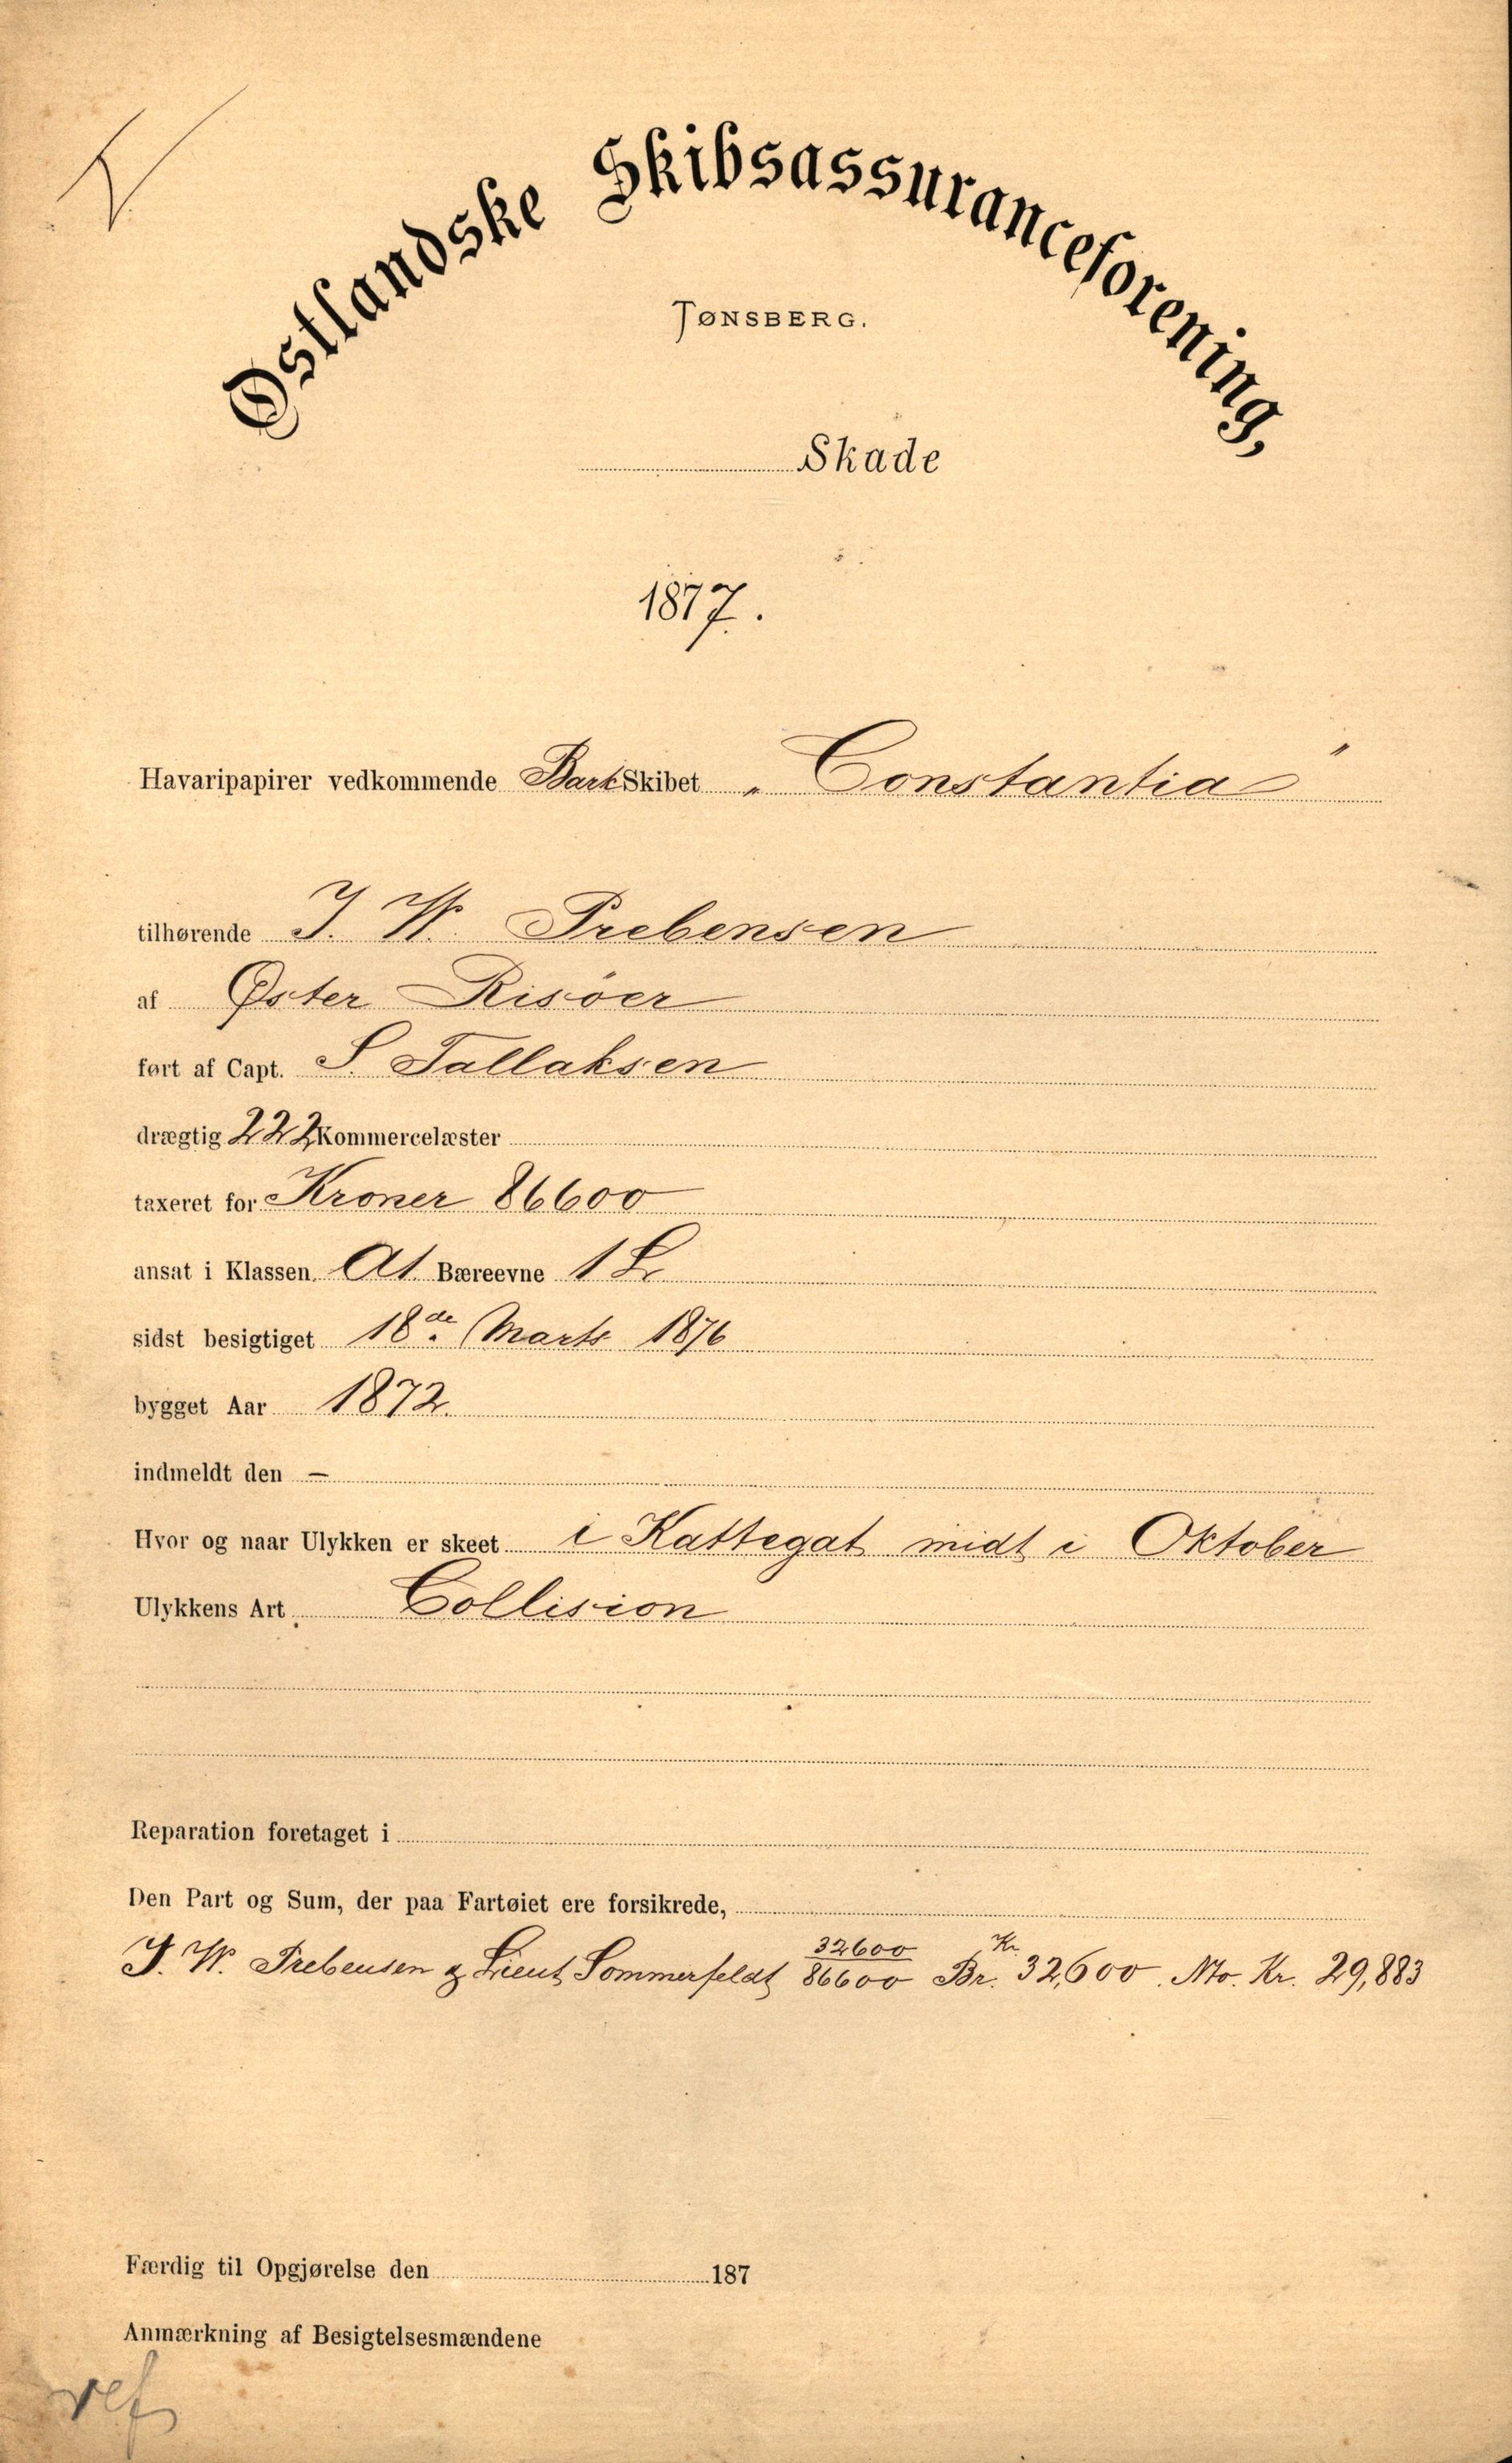 Østlandske Skibsassuranceforening,
TØNSBERG.
Skade
1877.
Havaripapirer vedkommende Bark Skibet „Constantia"
tilhørende J. W. Prebensen
af Øster Risøer
ført af Capt. S. Tallaksen
drægtig 222 Kommercelæster
taxeret for Kroner 86600
ansat i Klassen A1. Bæreevne 1
sidst besigtiget 18de Marts 1876
bygget Aar 1872.
indmeldt den —
Hvor og naar Ulykken er skeet i Kattegat midt i Oktober
Ulykkens Art Collision
Reparation foretaget i
Den Part og Sum, der paa Fartøiet ere forsikrede,
J. W. Prebensen & Lieut Sommerfeldt 32600/86600 Br. Kr. 32,600. Nto. Kr. 29,883
Færdig til Opgjørelse den 187
Anmærkning af Besigtelsesmændene
ref